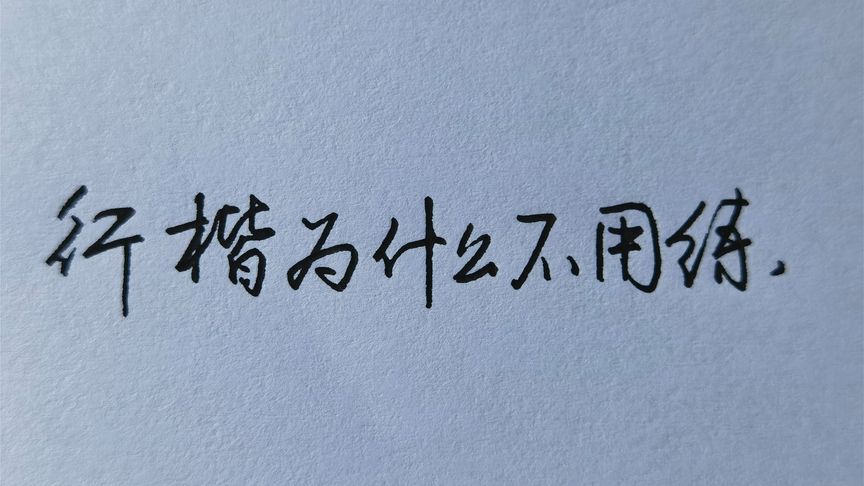 行楷为什么不用练,